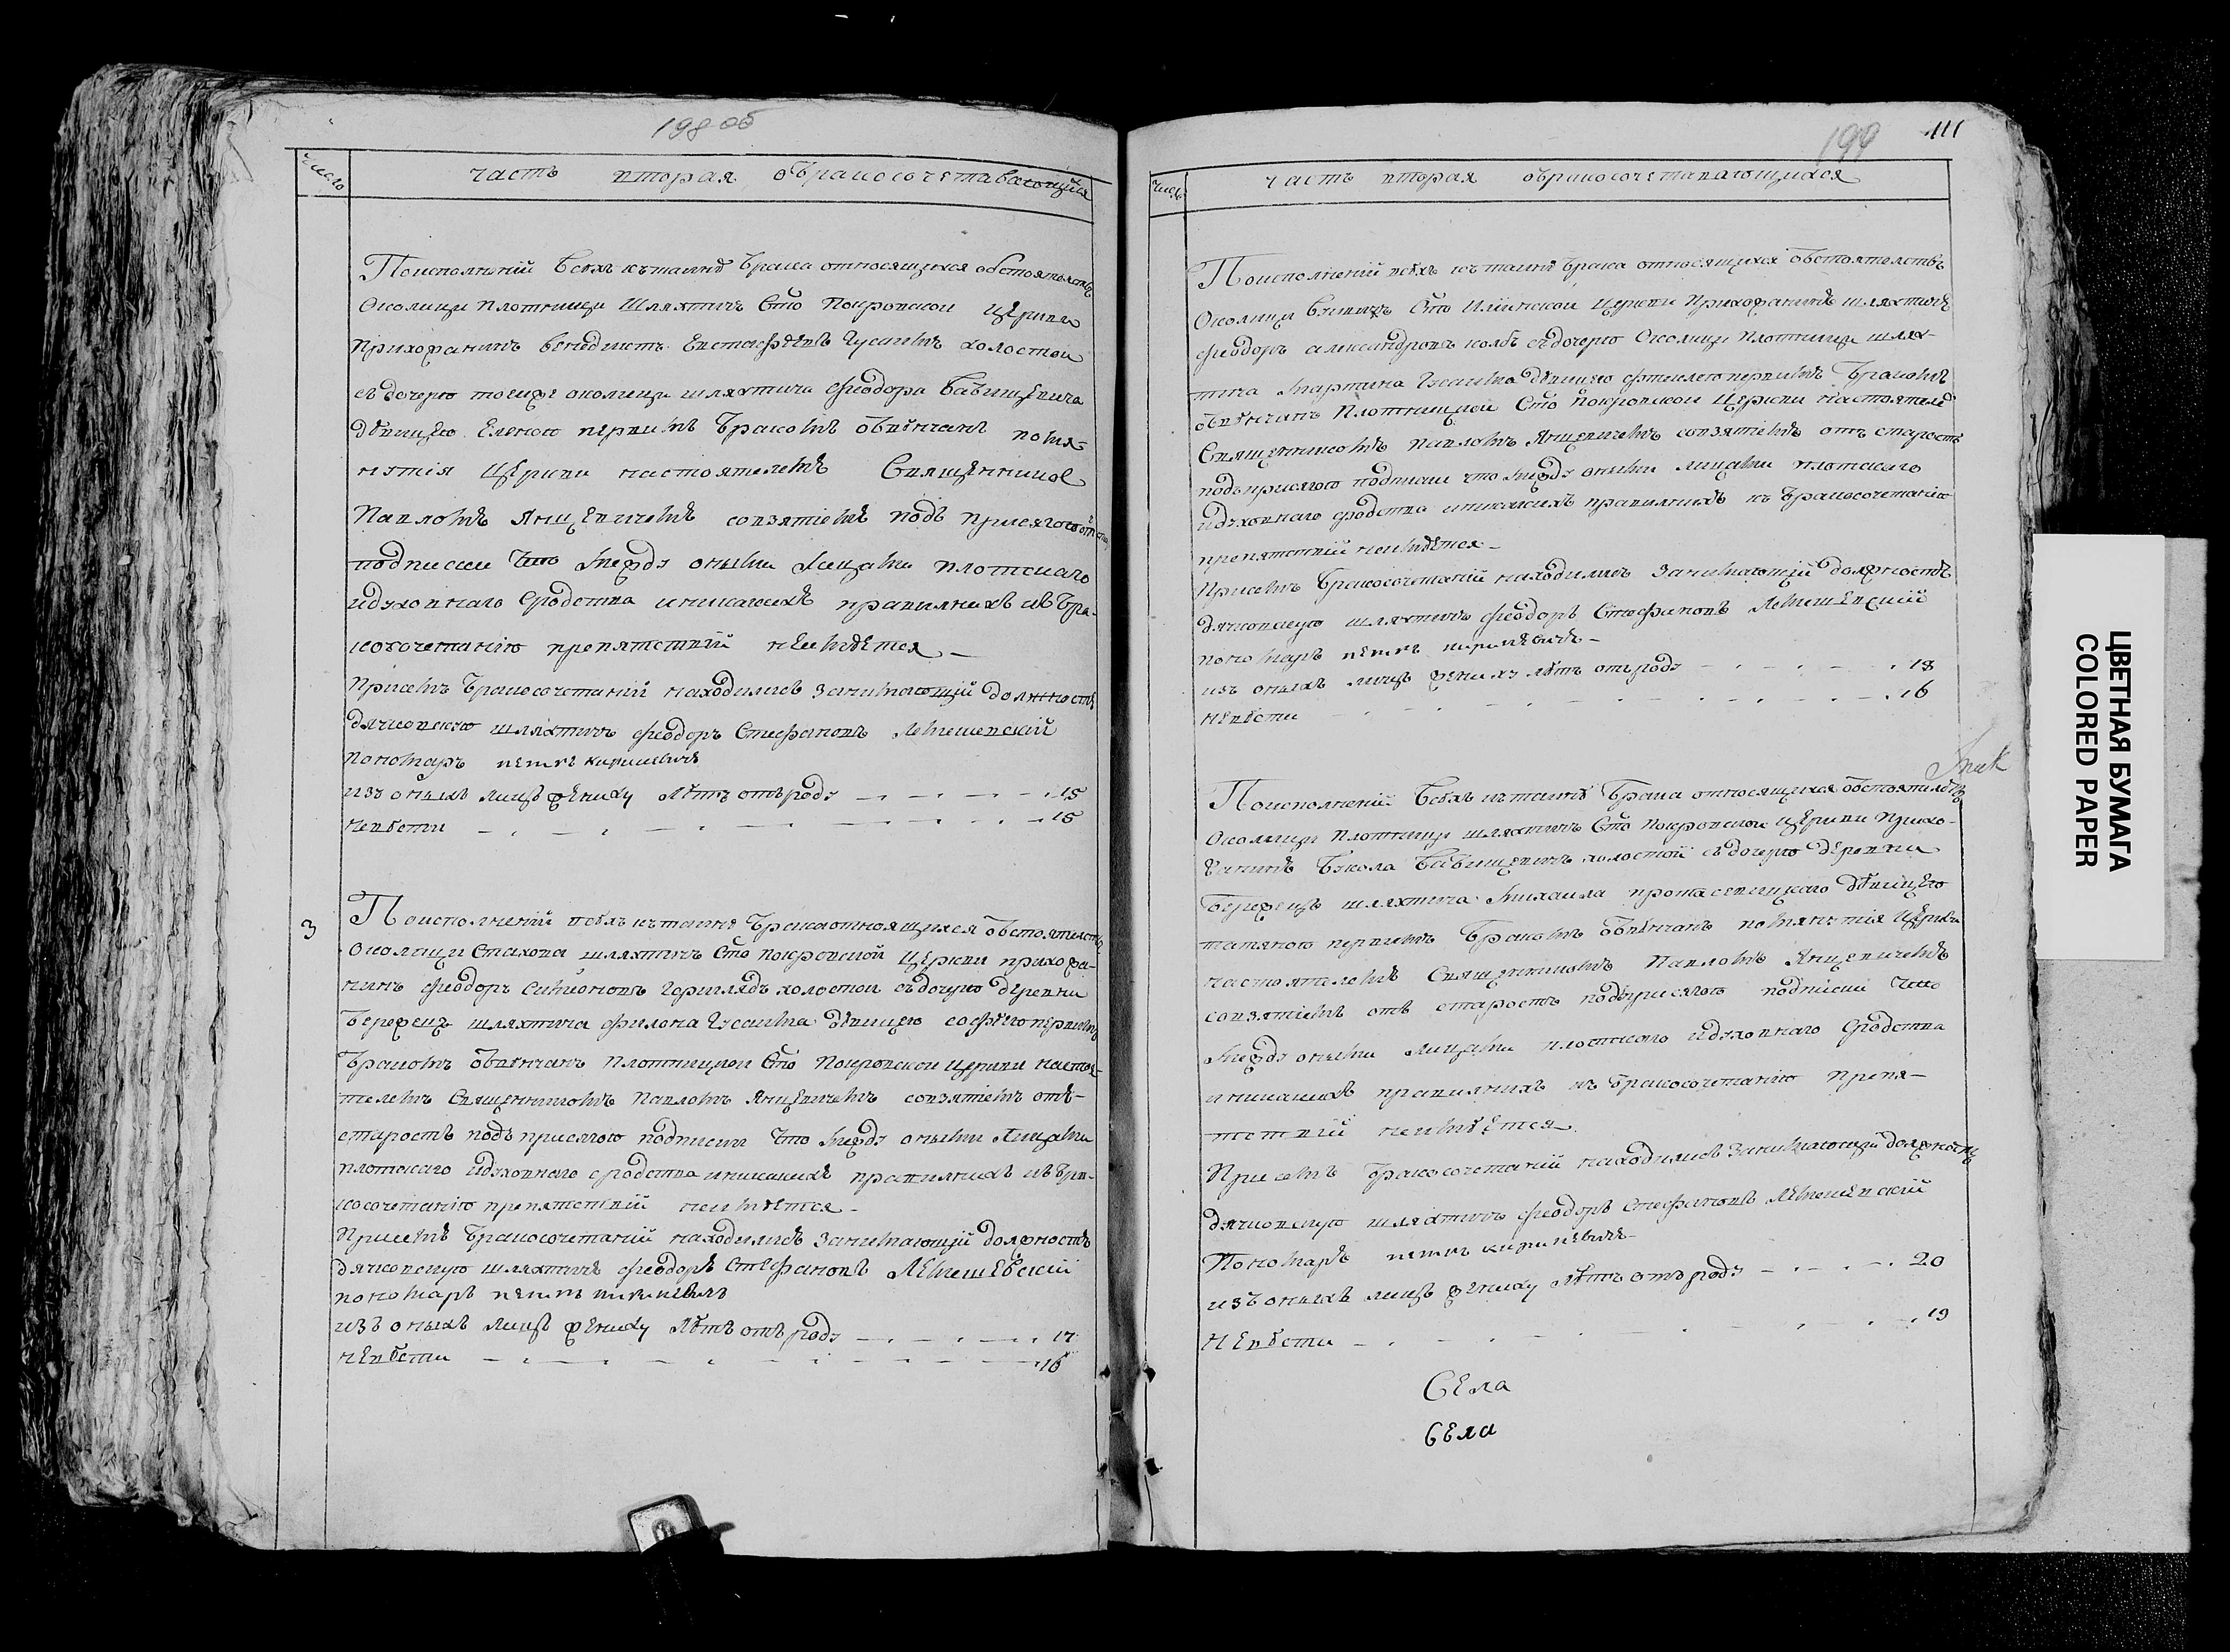 198 об
Число
Часть вторая обракосочетавающийся
Поисполнений всехъ ктаинѣ брака относящихся обстоятельствъ
Околицы Плотницы Шляхтичъ Сто Покровской Церкви
прихожанинъ Бенедиктъ Евстафѣевъ Гусаимъ холостой
съдочерю тоейже околицы шляхтича Феодора Бабищевича
дѣвицею Еленою первимъ бракомъ обвѣнчанъ помя-
нутія Церкви настоятелемъ Священникомъ
Павломъ Янцевичемъ совзятіемъ подъ присягою от
подписки что между оними лицами плотскаго
идуховнаго сродства иникакихъ правилнихъ къ бра-
косочетанію препятствій неимѣется –
Присемъ бракосочетаній находились занимающій должность
дячковскую шляхтичъ Феодоръ Стефановъ Лемешевскій
пономаръ
изъ онихъ лицъ жениху лѣтъ отъ роду 15
невѣсти 15
3
Поисполнений всехъ ктаинѣ брака относящихся обстоятельствъ
Околицы Стахова шляхтичъ Сто Покровской Церкви прихожа-
нинъ Феодоръ Симеоновъ холостой съдочерю деревни
Бережецъ шляхтича Филона Гусаима дѣвицею Софѣею первимъ
бракомъ обвѣнчанъ Плотницкой Сто Покровской Церкви настоя-
телемъ Священникомъ Павломъ Янцевичемъ совзятіемъ отъ-
старостъ подъ присягою подписки что между оними лицами
плотскаго идуховнаго сродства иникакихъ правилнихъ къ бра-
косочетанію препятствій неимѣется –
Присемъ бракосочетаній находились занимающій должность
дячковскую шляхтичъ Феодоръ Стефановъ Лемешевскій
пономаръ
изъ онихъ лицъ жениху лѣтъ отъ роду 17
невѣсти 16
199 111
Число
Часть вторая обракосочетавающихся
Поисполнений всехъ ктаинѣ брака относящихся обстоятелствъ
Околицы Сто Илiинской Церкви Прихожанинъ шляхтичъ
Феодоръ Александровъ Колбъ съдочерю Околицы Плотницы шлях-
тича Мартина Гусаима дѣвицею первимъ бракомъ
обвѣнчанъ Плотницкой Сто Покровской Церкви настоятелемъ
Священникомъ Павломъ Янцевичемъ совзятіемъ отъ старостъ
подъ присягою подписки что между оними лицами плотскаго
идуховнаго сродства иникакихъ правилнихъ къ бракосочетанію
препятствій неимѣется –
Присемъ бракосочетаній находились занимающій должность
дячковскую шляхтичъ Феодоръ Стефановъ Лемешевскій
пономаръ
изъ онихъ лицъ жениху лѣтъ отъ роду 18
невѣсти 16
Поисполнений всехъ ктаинѣ брака относящихся обстоятелствъ
Околицы Плотницы шляхтичъ Сто Покровской Церкви Прихо-
жанинъ Вукола Бабищевичъ холостой съдочерю деревни
Бережецъ шляхтича Михаила Протасевицкаго дѣвицею
татяною первимъ бракомъ обвѣнчанъ помянутія Церкви
настоятелемъ Священникомъ Павломъ Янцевичемъ
совзятіемъ отъ старостъ подъ присягою подписки что
между оними лицами плотскаго идуховнаго сродства
иникакихъ правилнихъ къ бракосочетанію препя-
тствій неимѣется.
Присемъ бракосочетаній находились занимающій должность
дячковскую шляхтичъ Феодоръ Стефановъ Лемешевскій
Пономаръ
изъ онихъ лицъ жениху лѣтъ отъ роду 20
невѣсти 19
Села
Села
ЦВЕТНАЯ БУМАГА
COLORED PAPER